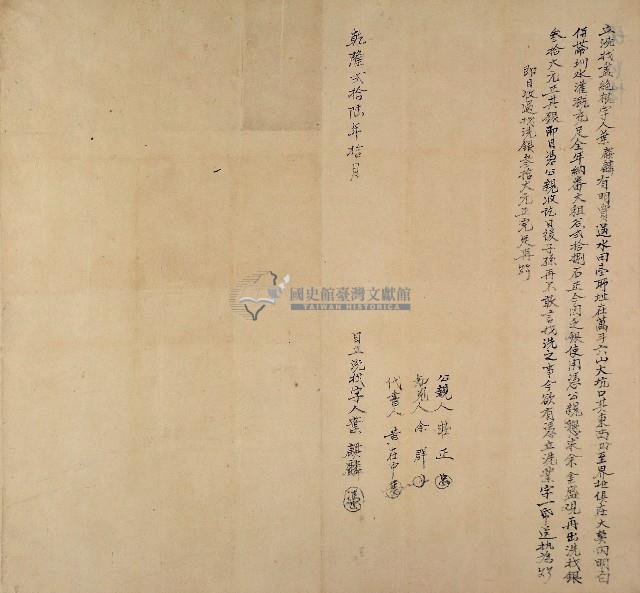 立洗找盡絕根字人葉麒麟有明買過水田壹所址在萬斗六山大坑口其東西四至界址俱在大契內明白
併帶圳水灌溉充足全年納番大租谷貳拾捌石正今因乏銀使用憑公親懇求余金盛觀再出洗找銀
叁拾大元正其銀即日憑公親收訖日後子孫再不敢言找洗之事今欲有憑立洗業字一帋送執為炤
即日收過找洗銀叁拾大元正完足再炤
公親人 莊正
知見人 余群
代書人 黃在中
乾隆貳拾陸年拾月 日立洗找字人葉麒麟
國史館臺灣文獻館
TAIWAN HISTORICA